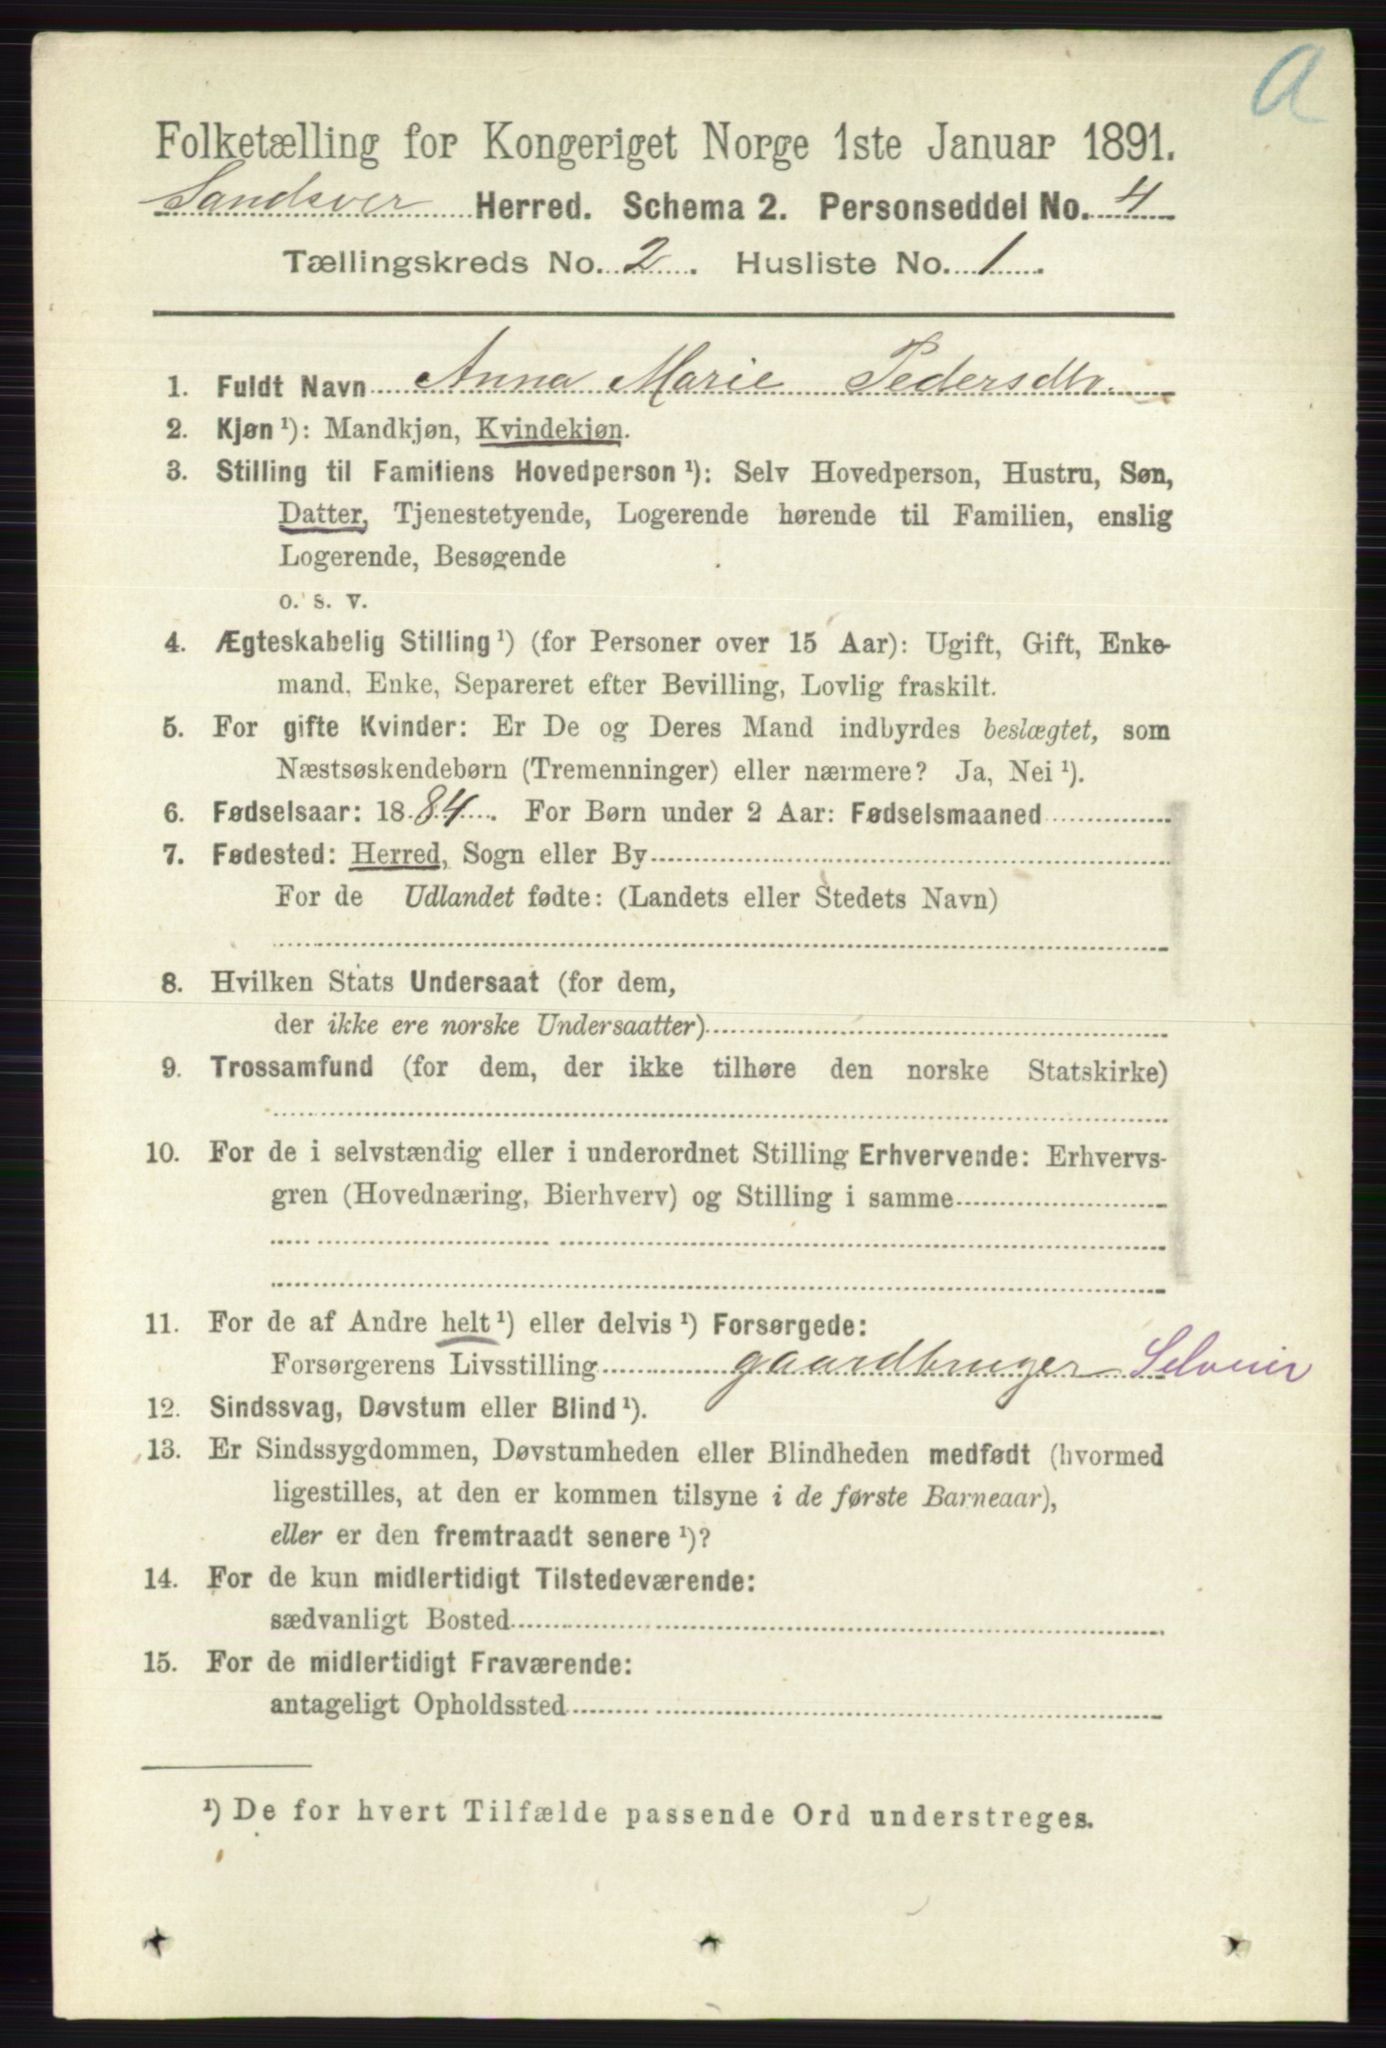 A
Folketælling for Kongeriget Norge 1ste Januar 1891.
Sandsver Herred. Schema 2. Personseddel No. 4
Tællingskreds No. 2. Husliste No. 1.
1. Fuldt Navn Anna Marie Pedersdtr.
2. Kjøn ¹): Mandkjøn, Kvindekjøn.
3. Stilling til Familiens Hovedperson ¹): Selv Hovedperson, Hustru, Søn,
Datter, Tjenestetyende, Logerende hørende til Familien, enslig
Logerende, Besøgende
o. s. v.
4. Ægteskabelig Stilling ¹) (for Personer over 15 Aar): Ugift, Gift, Enke-
mand, Enke, Separeret efter Bevilling, Lovlig fraskilt.
5. For gifte Kvinder: Er De og Deres Mand indbyrdes beslægtet, som
Næstsøskendebørn (Tremenninger) eller nærmere? Ja, Nei ¹).
6. Fødselsaar: 1884. For Børn under 2 Aar: Fødselsmaaned
7. Fødested: Herred, Sogn eller By
For de Udlandet fødte: (Landets eller Stedets Navn)
8. Hvilken Stats Undersaat (for dem,
der ikke ere norske Undersaatter)
9. Trossamfund (for dem, der ikke tilhøre den norske Statskirke)
10. For de i selvstændig eller i underordnet Stilling Erhvervende: Erhvervs-
gren (Hovednæring, Bierhverv) og Stilling i samme
11. For de af Andre helt ¹) eller delvis ¹) Forsørgede:
Forsørgerens Livsstilling gaardbruger Selveier
12. Sindssvag, Døvstum eller Blind ¹).
13. Er Sindssygdommen, Døvstumheden eller Blindheden medfødt (hvormed
ligestilles, at den er kommen tilsyne i de første Barneaar),
eller er den fremtraadt senere ¹)?
14. For de kun midlertidigt Tilstedeværende:
sædvanligt Bosted
15. For de midlertidigt Fraværende:
antageligt Opholdssted
¹) De for hvert Tilfælde passende Ord understreges.